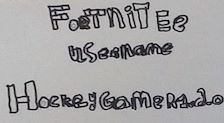 FORTNITEe
username
HockeyGamer1.20